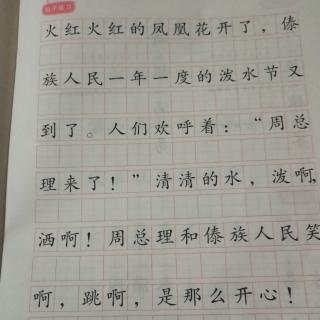 句子练习
火红火红的凤凰花开了，傣
族人民一年一度的泼水节又
到了。人们欢呼着：“周总
理来了！”清清的水，泼啊，
洒啊！周总理和傣族人民笑
啊，跳啊，是那么开心！